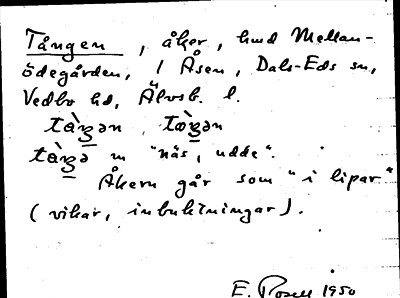 Tången, åker, hmd Mellan-
ödegården, 1 Åsen, Dals-Eds sn,
Vedbo hd, Älvsb. l.
tàŋən, tœ̀ŋən
tàŋə m "näs, udde".
Åkern går som "i lipar"
(vikar, inbuktningar).
E. Rosell 1950